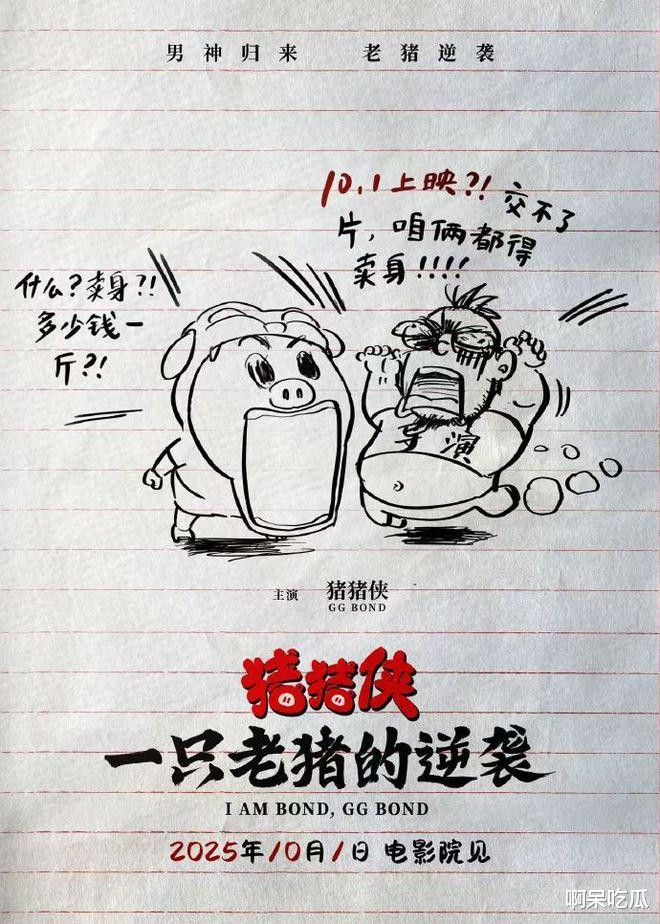 男神归来 老猪逆袭
10.1上映?! 交不了
片，咱俩都得
卖身!!!!
什么?卖身?!
多少钱一
斤?!
导演
主演 猪猪侠
GG BOND
猪猪侠
一只老猪的逆袭
I AM BOND, GG BOND
2025年10月1日 电影院见
啊呆吃瓜